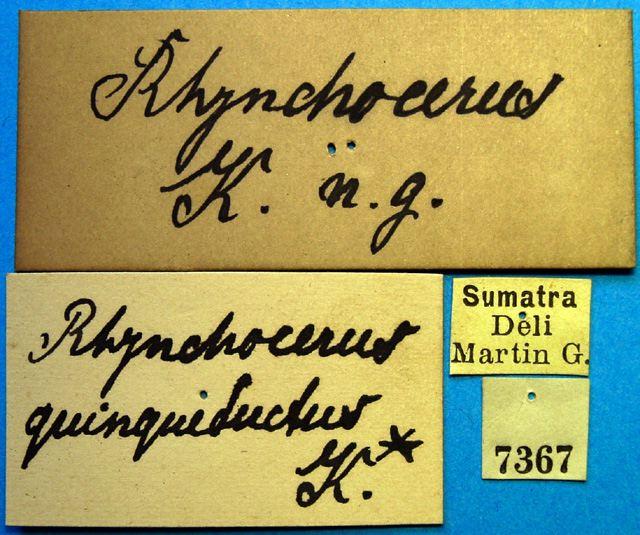 Rhynchocerus
K. n. g.
Rhynchocerus
quinquefuctus
K.*
Sumatra
Deli
Martin G.
7367